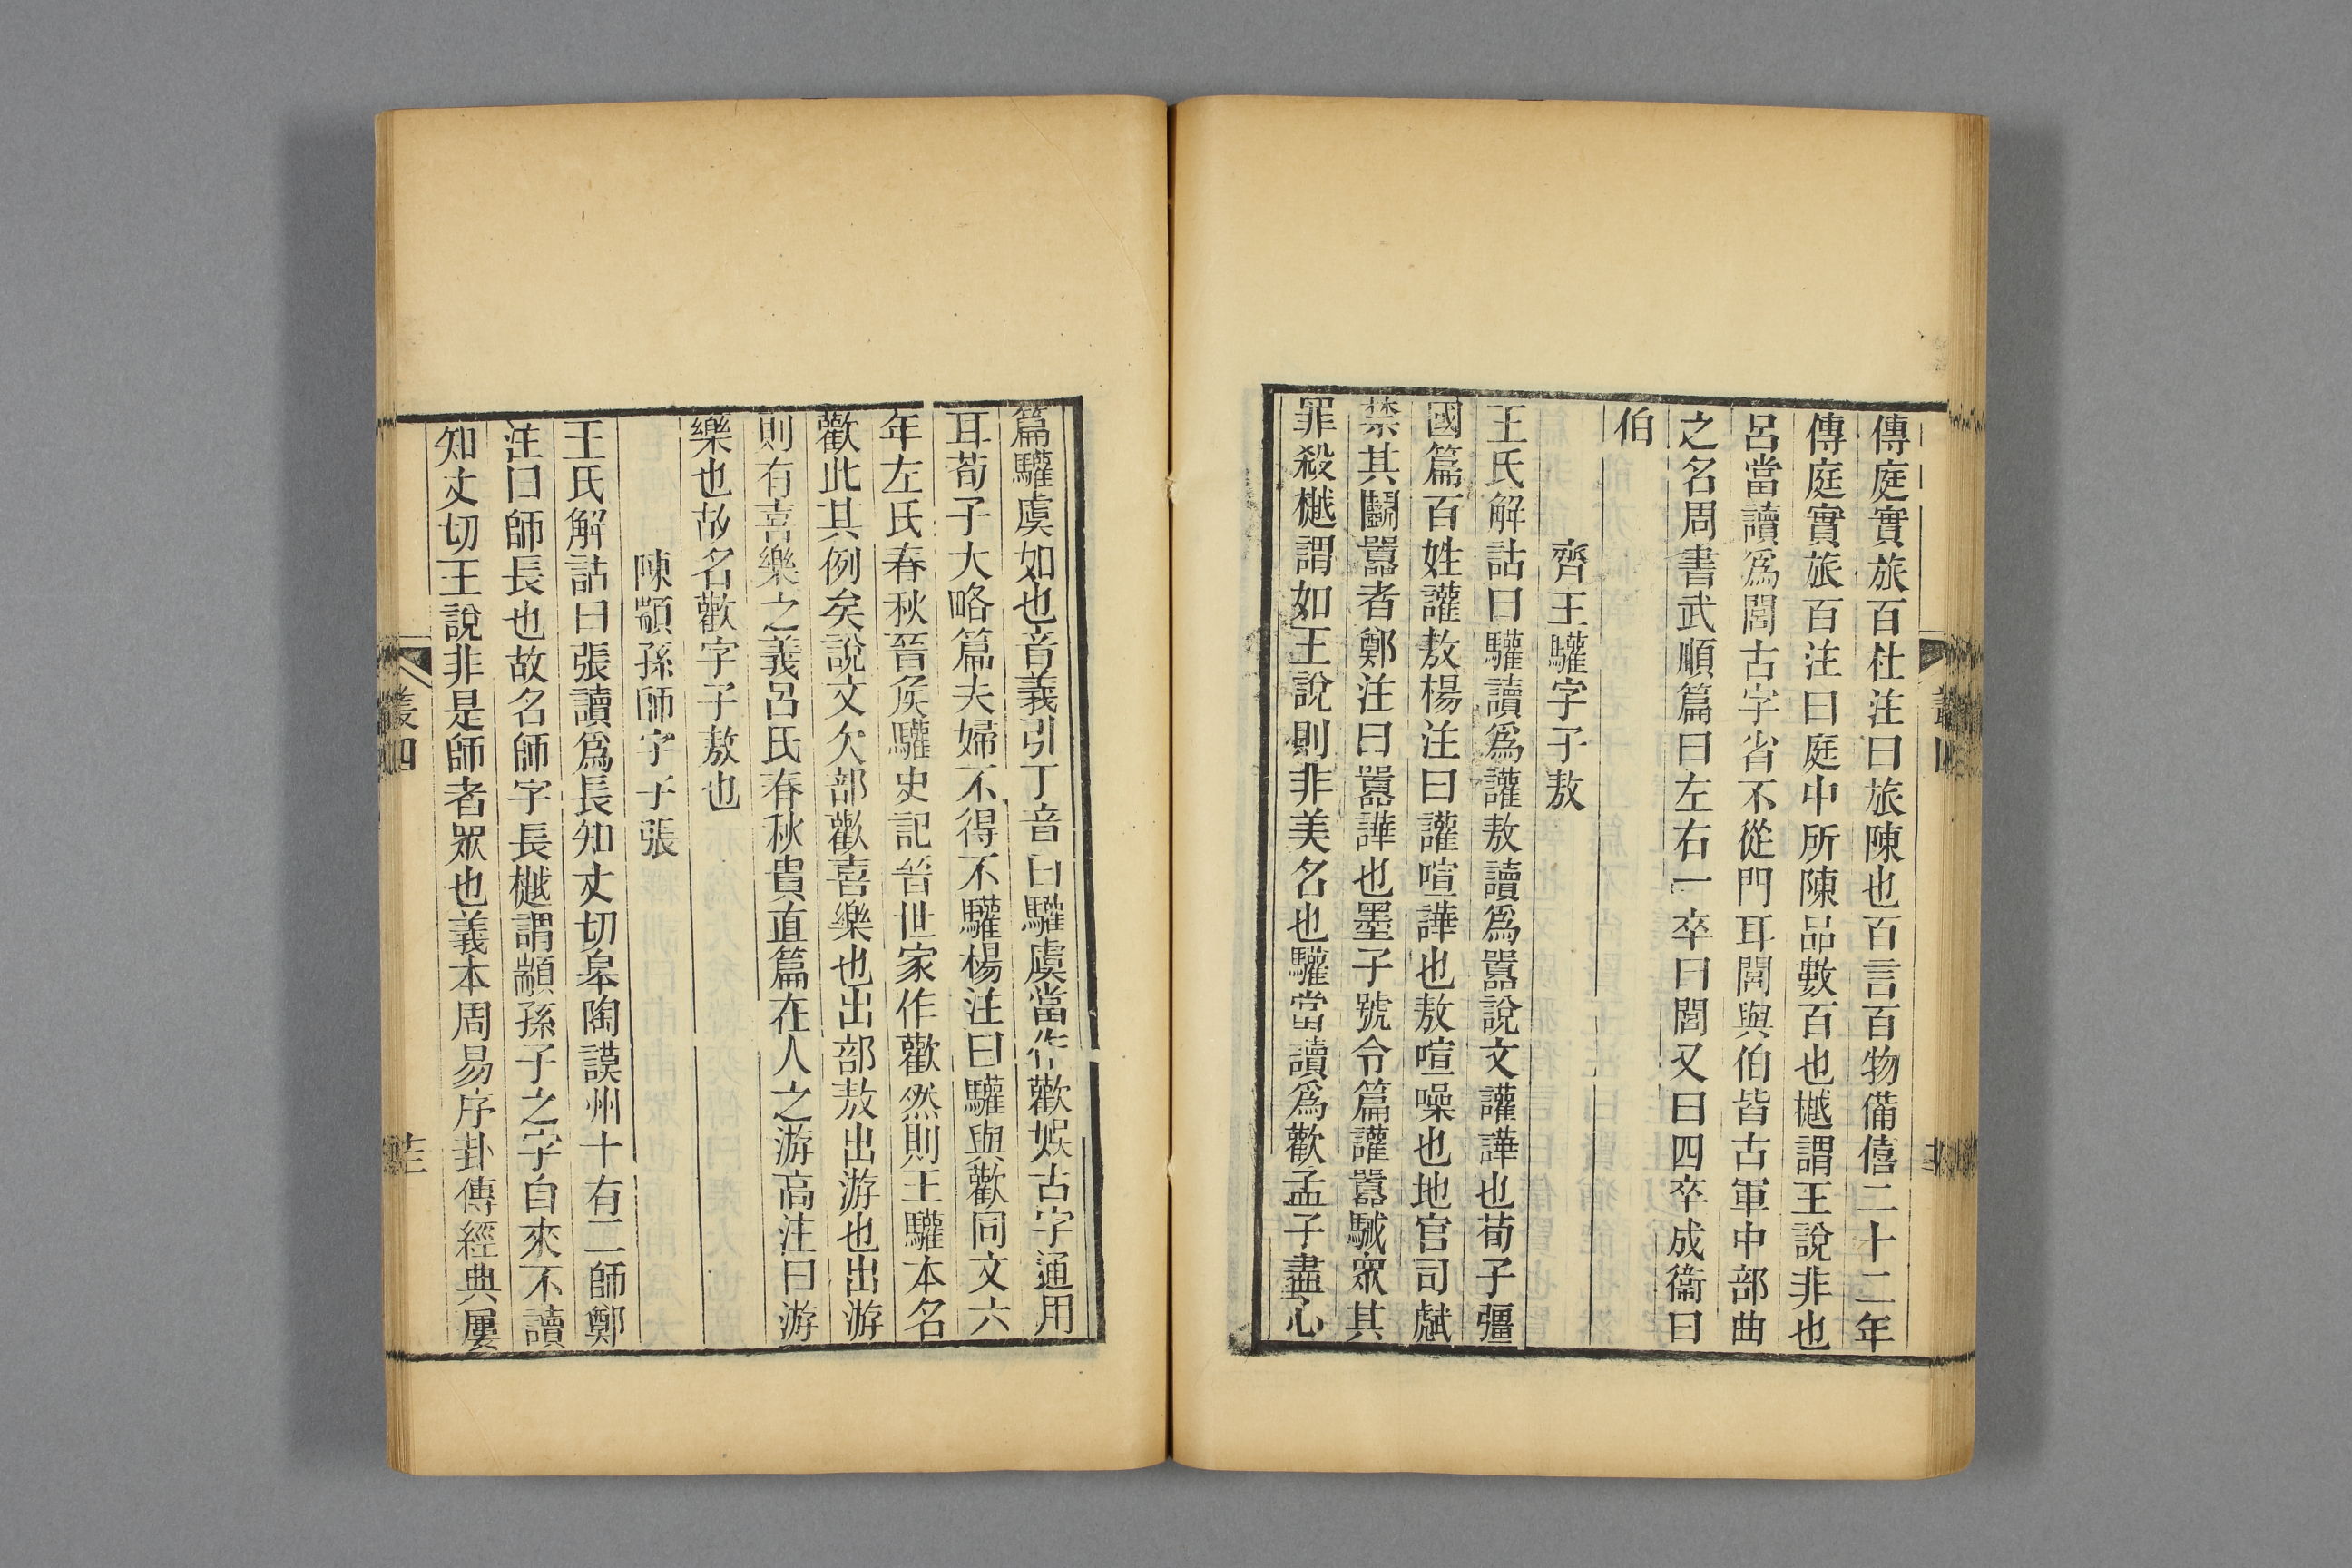 傳庭實旅百杜注曰旅陳也百言百物備僖二十二年
傳庭實旅百注曰庭中所陳品數百也樾謂王說非也
呂當讀爲閭古字省不從門耳閭與伯皆古軍中部曲
之名周書武順篇曰左右一卒曰閭又曰四卒成衞曰
伯
齊王驩字子敖
王氏解詁曰驩讀爲讙敖讀爲嚣說文讙譁也荀子彊
國篇百姓讙敖楊注曰讙喧譁也敖喧噪也地官司虣
禁其鬭嚣者鄭注曰嚣譁也墨子號令篇讙嚣駴眾其
罪殺樾謂如王說則非美名也驩當讀爲歡孟子盡心
篇驩虞如也音義引丁音曰驩虞當作歡娛古字通用
耳荀子大略篇夫婦不得不驩楊注曰驩與歡同文六
年左氏春秋晉矦驩史記晉世家作歡然則王驩本名
歡此其例矣說文欠部歡喜樂也出部敖出游也出游
則有喜樂之義呂氏春秋貴直篇在人之游高注曰游
樂也故名歡字子敖也
陳顓孫師字子張
王氏解詁曰張讀爲長知丈切皋陶謨州十有二師鄭
注曰師長也故名師字長樾謂顓孫子之字自來不讀
知丈切王說非是師者眾也義本周易序卦傳經典屢
叢四